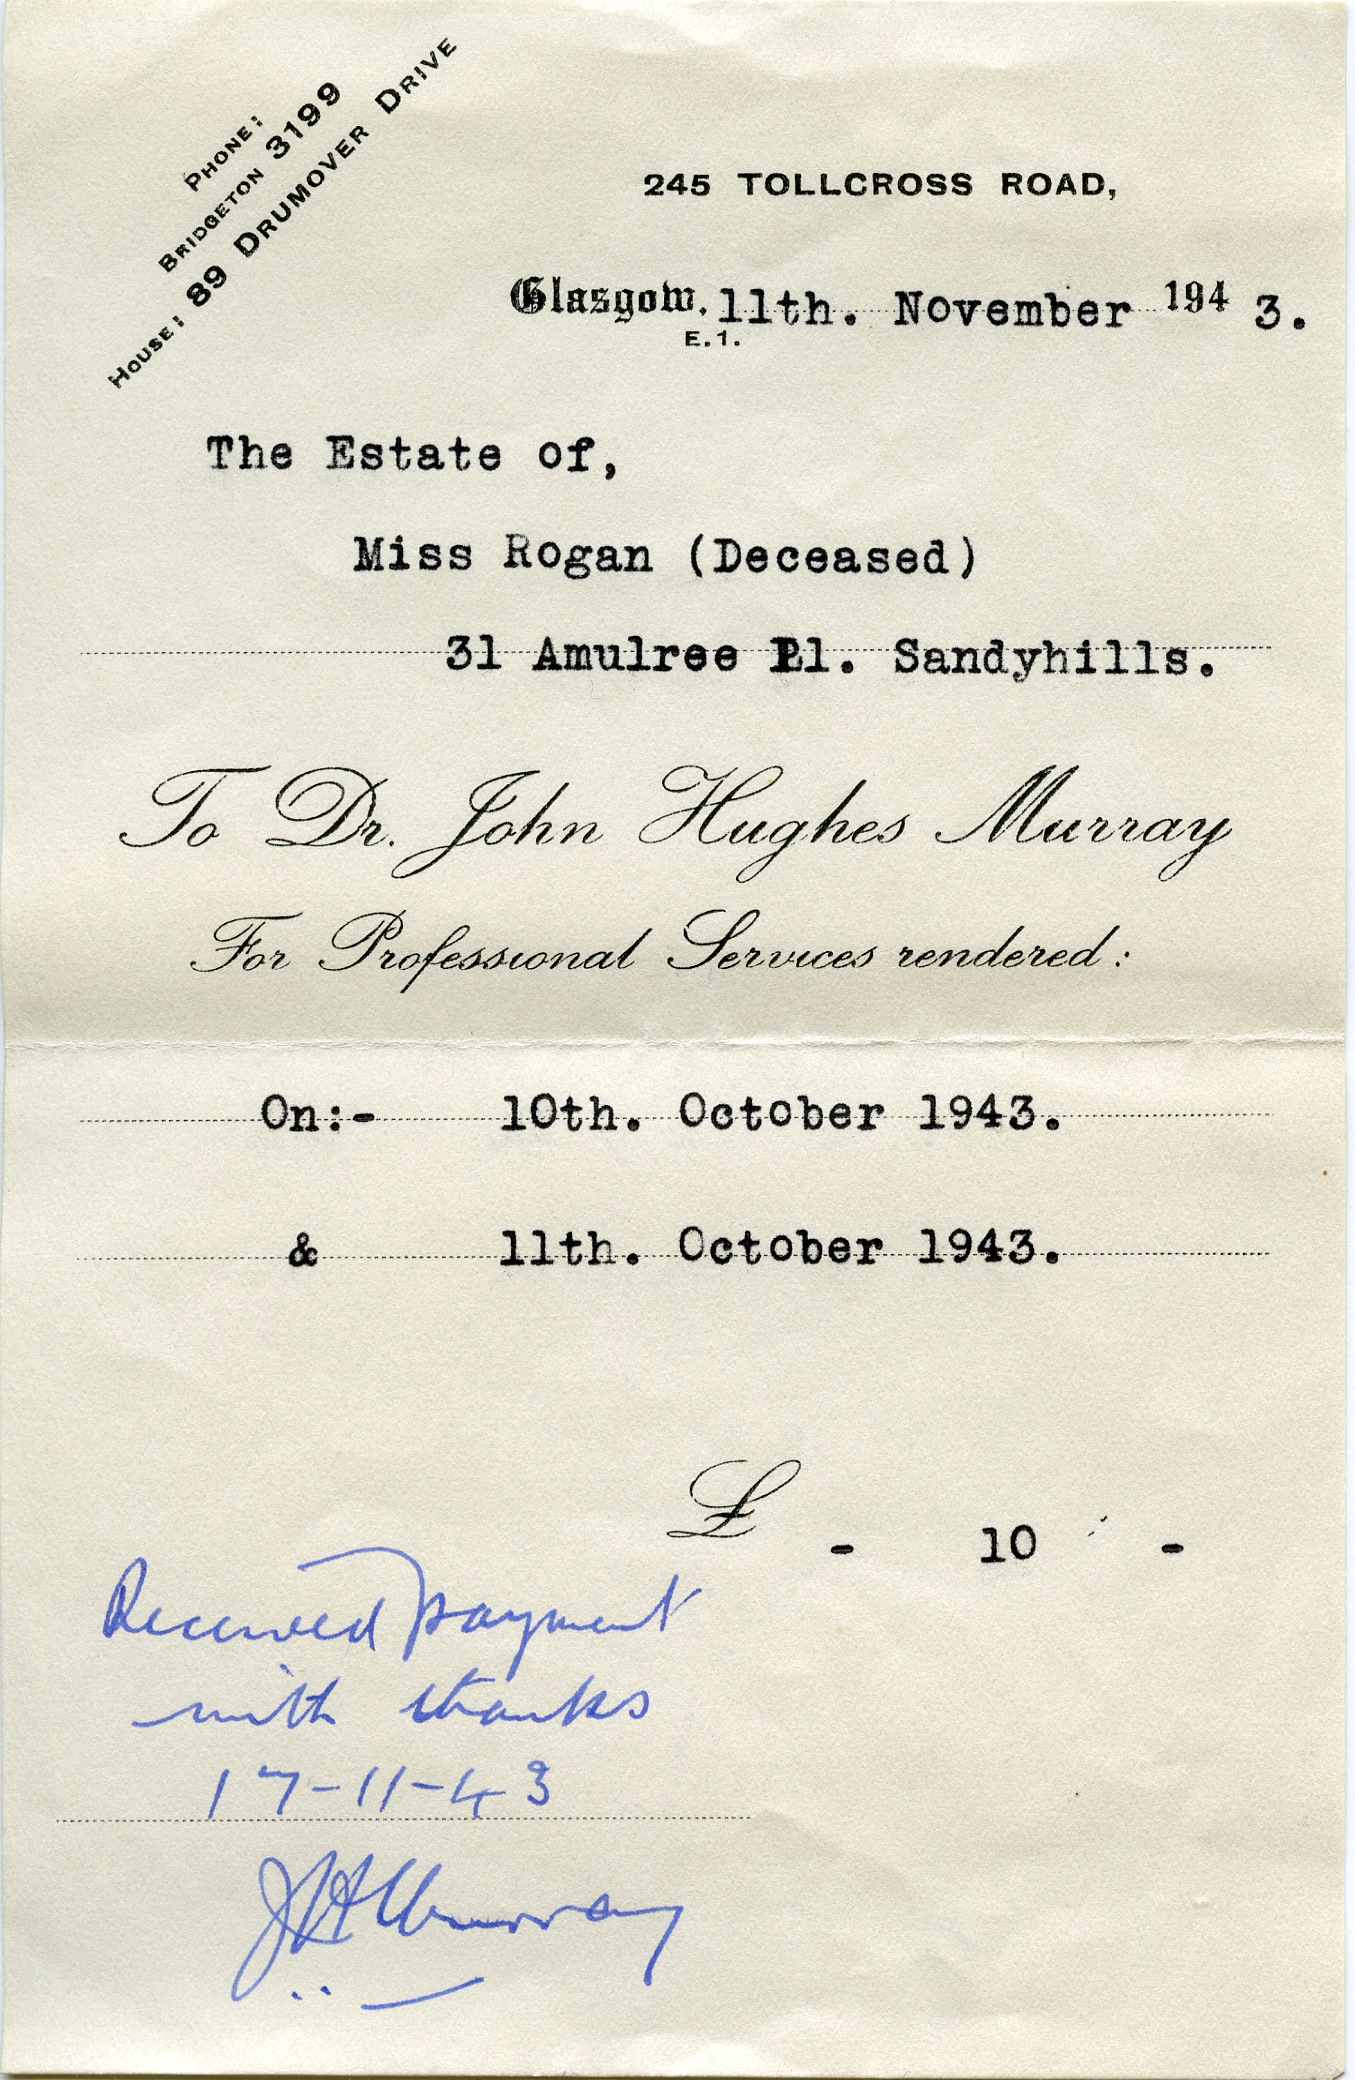 PHONE:
BRIDGETON 3199
HOUSE: 89 DRUMOVER DRIVE
245 TOLLCROSS ROAD,
Glasgow, 11th. November 1943.
E.1.
The Estate of,
Miss Rogan (Deceased)
31 Amulree Pl. Sandyhills.
To Dr. John Hughes Murray
For Professional Services rendered:
On:- 10th. October 1943.
& 11th. October 1943.
£ - 10 -
Received payment
with thanks
17-11-43
J H Murray